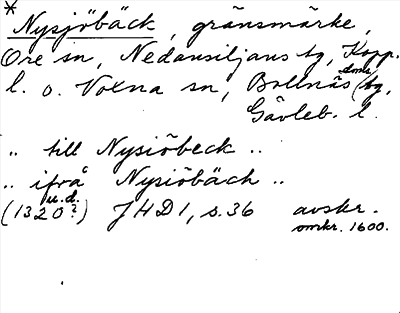 * Nysjöbäck, gränsmärke,
Ore sn, Nedansiljans tg, Kopp.
l. o. Voxna sn, Bollnäs (doms) tg,
Gävleb. l.
.. till Nysiöbeck ..
.. ifrå Nysiöbäch ..
(1320? u.d.) JHD 1, s. 36 avskr.
omkr. 1600.